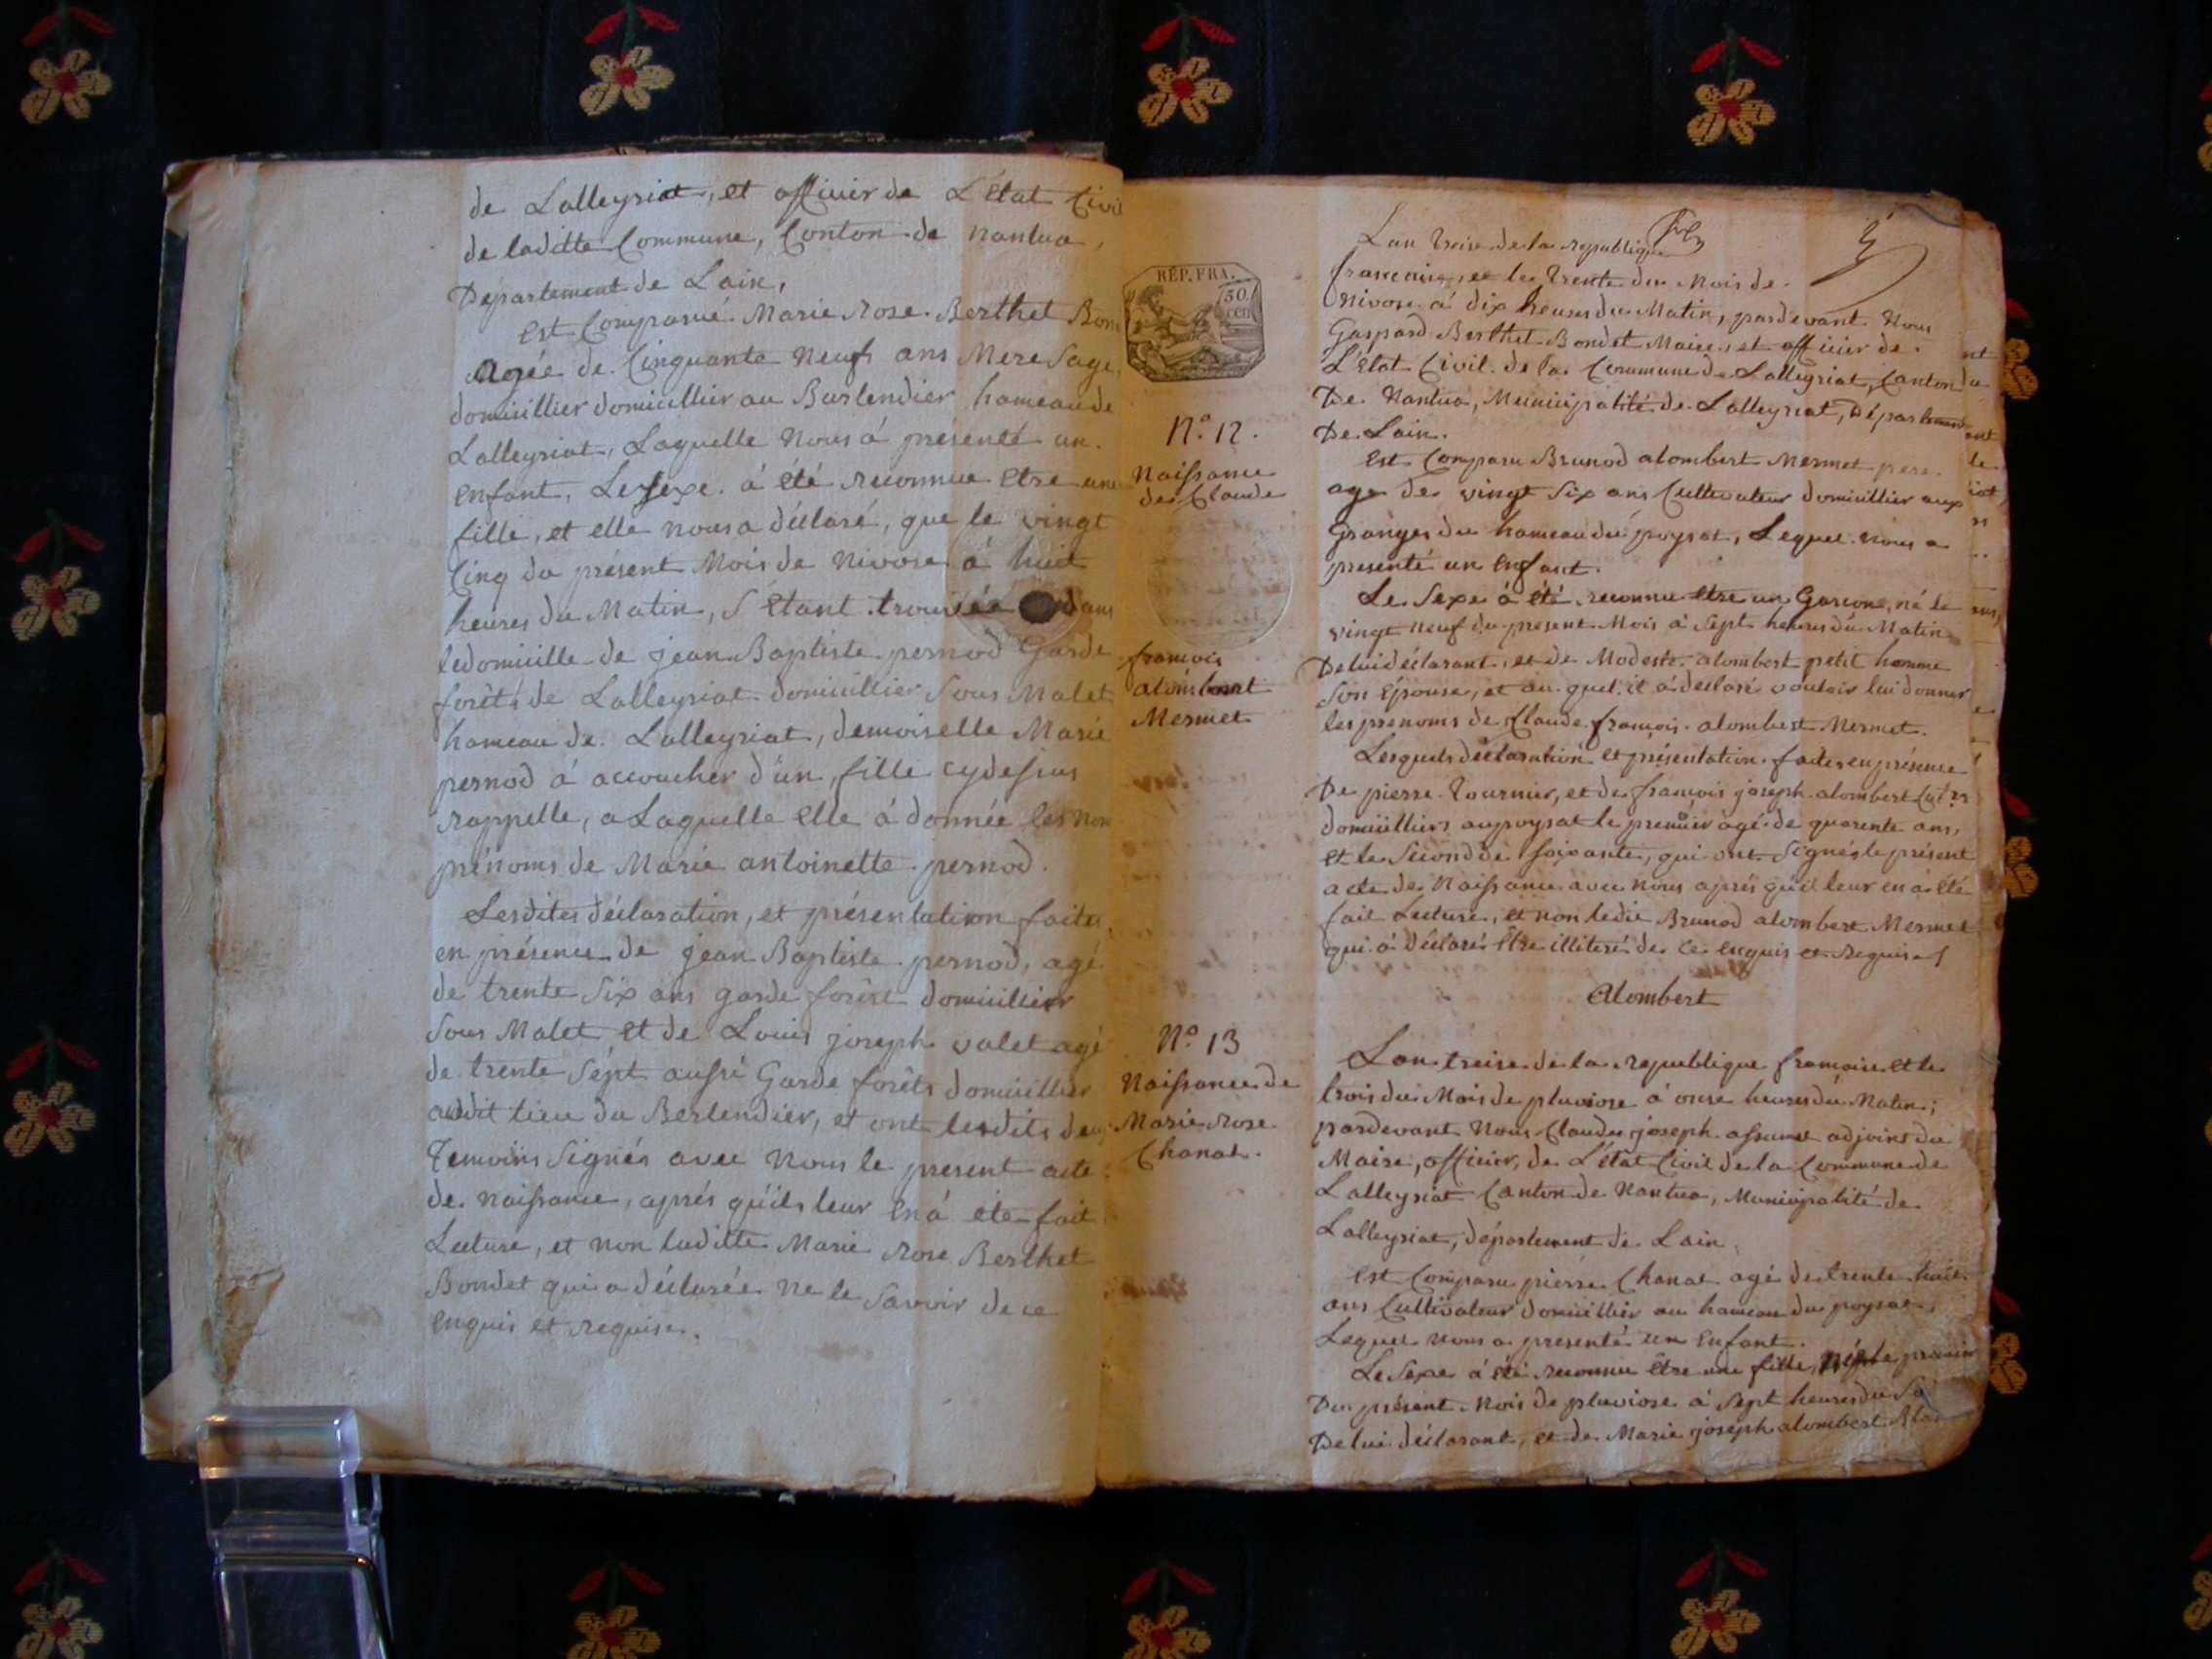 de Lalleyriat, et officier de L'état Civil
de laditte Commune, Conton de nantua,
Département de Lain,
Est Comparué Marie Rose Berthet Bon
agée de Cinquante neufs ans Mere Sage,
domicillier domicillier au Burlendier hameau de
Lalleyriat, Laquelle nous á présenté un
enfant, Le Sexe á été reconnue Etre une
fille, et elle nous a déclaré, que le vingt
Cinq du présent Mois de nivose á huit
heures du Matin, S'étant trouvée dans
le domicille de jean Baptiste pernod Garde
forêts de Lalleyriat domicillier Sous Malet
hameau de Lalleyriat, demoiselle Marie
pernod á accoucher d'un fille cydessus
rappelle, a Laquelle Elle á donnée les nom
prénoms de Marie antoinette pernod.
Lesdites déclaration, et présentation faites
en présence de jean Baptiste pernod, agé
de trente Six ans garde forêst domicillier
Sous Malet et de Louis joseph valet agé
de trente Sépt aussi Garde forêts domicillier
audit lieu du Berlendier, et ont lesdits deux
Temoins Signés avec nous le present acte
de naissance, aprés qu'ils leur en á éte fait
Lecture, et non laditte Marie rose Berthet
Bondet qui a déclarée ne le Savoir de ce
enquis et requise.
RÉP. FRA.
50
cen
N.º 12.
Naissance
de Claude
francois
alombert
Mermet
Lan treise de la republique
francaise, et le trente du Mois de
nivose á dix heures du Matin, pardevant nous
Gaspard Berthet Bondet Maire, et officier de
L'état Civil de la Commune de Lalleyriat, Canton
De Nantua, Municipalité de Lalleyriat, Département
De Lain.
Est Comparu Brunod alombert Mermet pere
age de vingt Six ans Cultivateur domicillier aux
Granges du hameau du poysat, Lequel nous a
presenté un enfant.
Le Sexe á été reconnu etre un Garcone, né le
vingt neuf du present Mois á Sept heures du Matin
De lui déclarant, et de Modeste alombert petit homme
Son épouse, et au quel il á déclaré vouloir lui donner
les prenoms de Claude francois alombert Mermet.
Lesquels déclaration et présentation faites en présence
De pierre Tournier, et de francois joseph alombert
domicilliers au poysat le premier agé de quarente ans,
et le Second de Soixante, qui ont Signés le présent
acte de Naissance avec nous aprés qu'il leur en á été
fait Lecture, et non ledit Brunod alombert Mermet
qui á déclaré Etre illiteré de ce enquis et requis
Alombert
Nº 13
Naissance de
Marie Rose
Chanat.
Lan treise de la republique francaise et le
trois du Mois de pluviose á onse heures du Matin;
pardevant Nous Claude joseph assumet adjoint du
Maire, officier, de L'état Civil de la Commune de
Lalleyriat Canton de Nantua, Municipalité de
Lalleyriat, département de Lain,
Est Comparu pierre Chanat agé de trente huit
ans Cultivateur domicillier au hameau du poysat,
Lequel nous a presenté un Enfant.
Le Sexe á été reconnu être une fille, née le premier
Du présent Mois de pluviose á Sept heures du
De lui déclarant, et de Marie joseph alombert